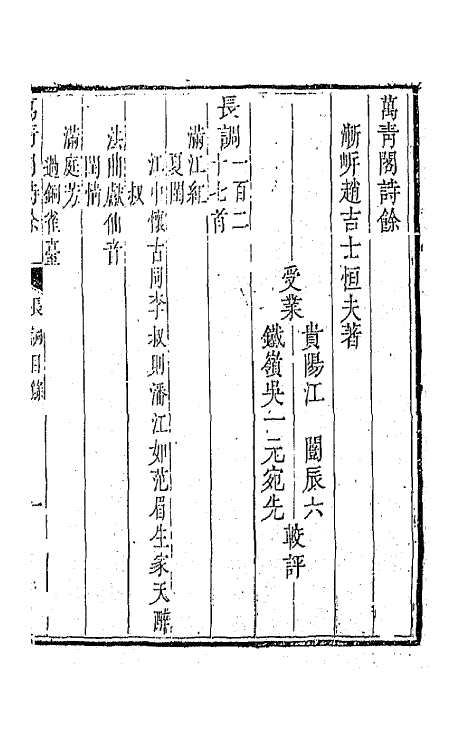 萬青閣詩餘
漸岓趙吉士恒夫著
受業
貴陽江闓辰六
鐵嶺吳一元宛先
較評
長調一百二十七首
滿江紅
夏閨
江中懷古同李叔則潘江如范眉生家天醉
叔
法曲獻仙音
閨情
滿庭芳
過銅雀臺
萬青閣詩餘
長調目錄
一